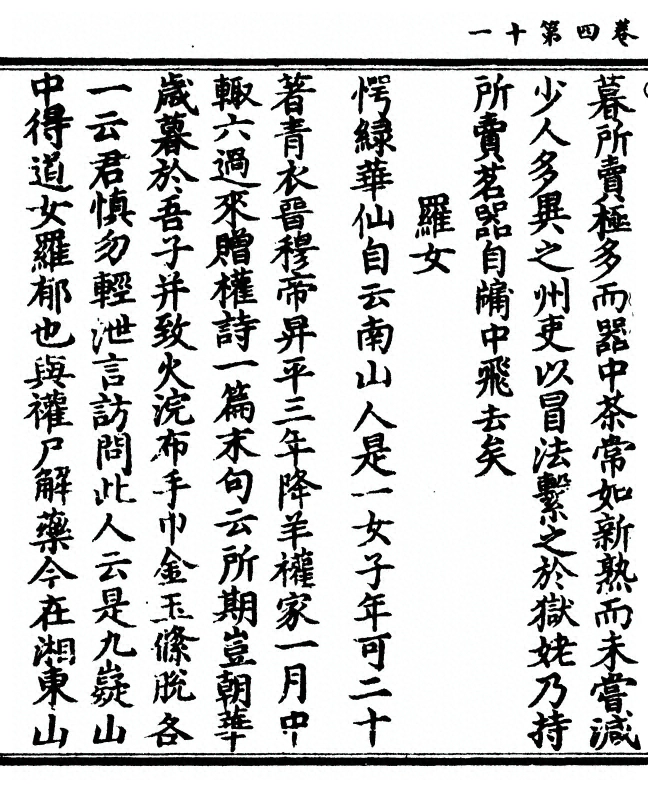 卷四第十一
暮所賣極多而器中茶常如新熟而未嘗減
少人多異之州吏以冒法繫之於獄姥乃持
所賣茗器自牖中飛去矣
羅女
愕緑華仙自云南山人是一女子年可二十
著青衣晉穆帝昇平三年降羊權家一月中
輙六過來贈權詩一篇末句云所期豈朝華
歲暮於吾子并致火浣布手巾金玉絛脫各
一云君慎勿輕泄言訪問此人云是九嶷山
中得道女羅郁也與權尸解藥今在湘東山